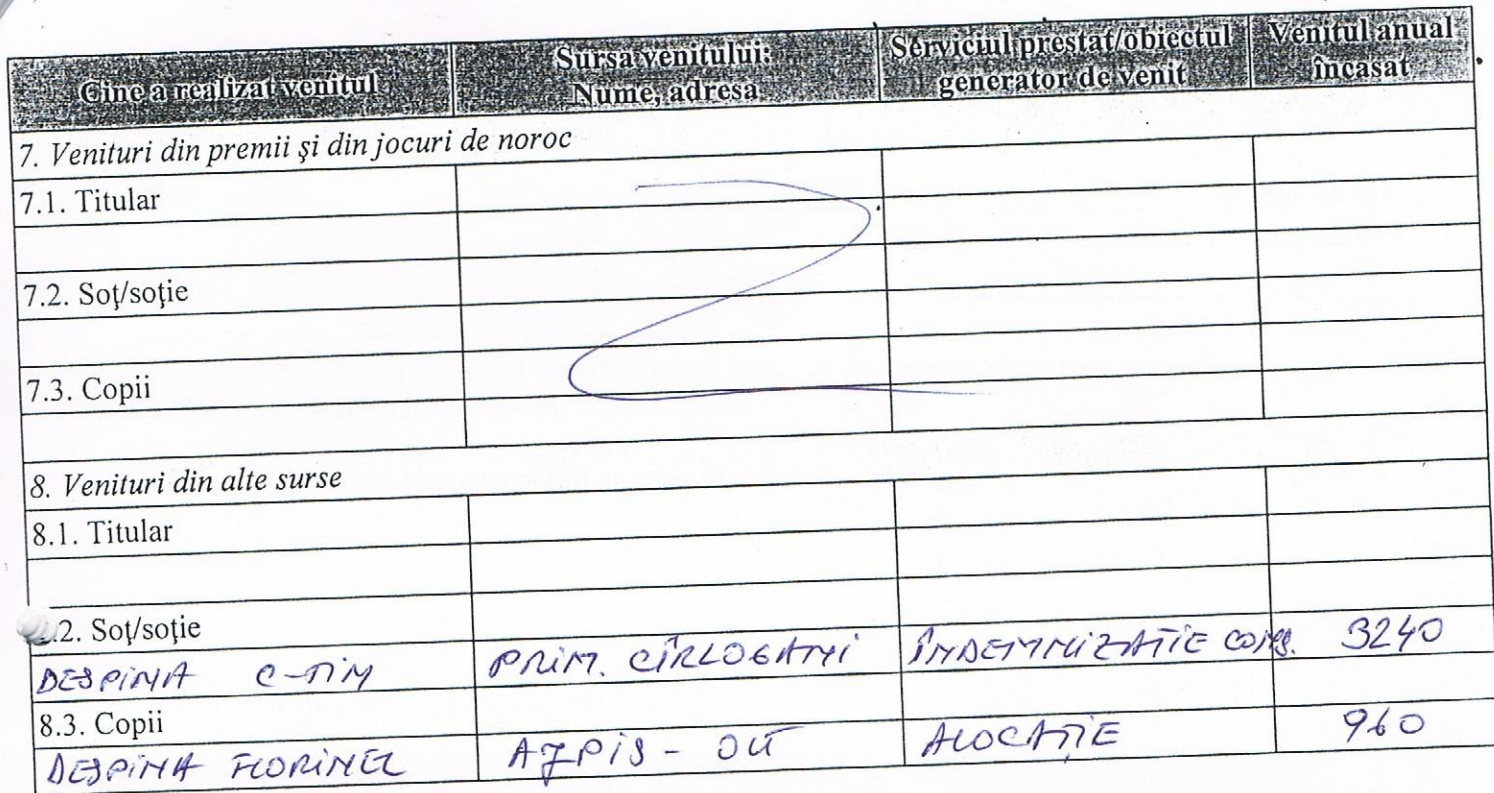 Cine a realizat venitul | Sursa venitului: Nume, adresa | Serviciul prestat/obiectul generator de venit | Venitul anual încasat
7. Venituri din premii şi din jocuri de noroc
7.1. Titular
7.2. Soţ/soţie
7.3. Copii
8. Venituri din alte surse
8.1. Titular
.2. Soţ/soţie
DESPINA C-TIN | PRIM. CÎRLOGANI | ÎNDEMNIZATIE CONS. | 3240
8.3. Copii
DESPINA FLORINEL | AJPIS - OLT | ALOCAȚIE | 960